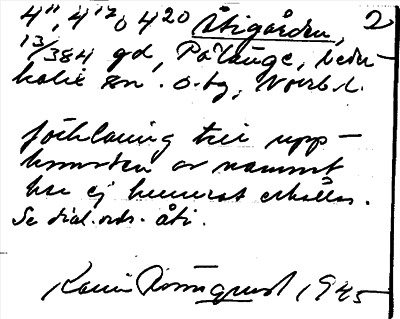 4¹¹, 4¹⁷ o 4²⁰ Åtigården, 2
13/384 gd, På Länge, Neder-
kalix sn. o. tg, Norrb. l.
förklaring till upp-
komsten av namnet
har ej kunnat erhållas.
Se dial. ords. åti.
Karin Rönnquist 1945